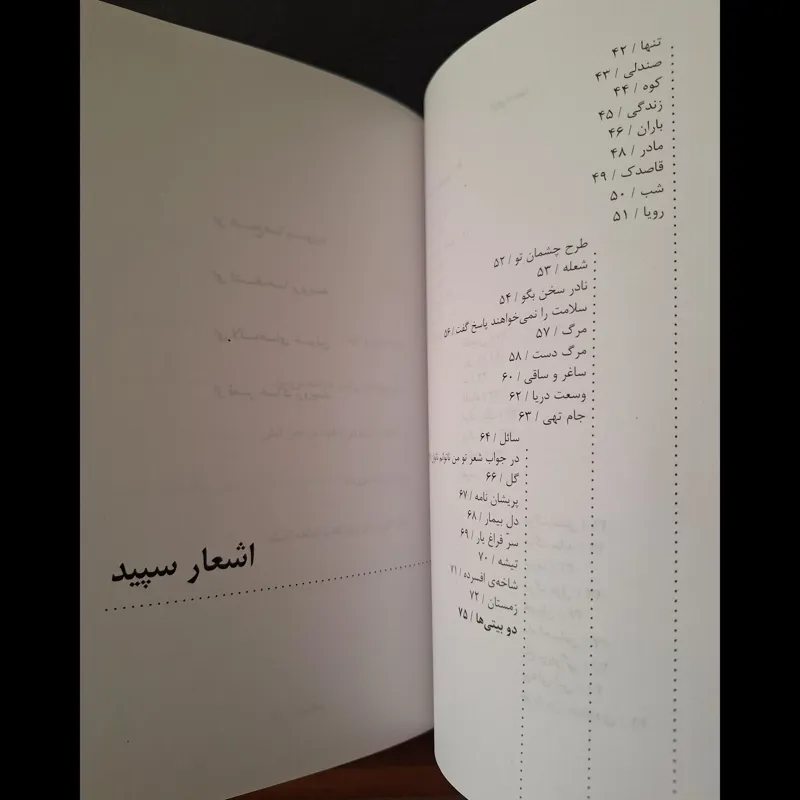 تنها / ۴۲
صندلی / ۴۳
کوه / ۴۴
زندگی / ۴۵
باران / ۴۶
مادر / ۴۸
قاصدک / ۴۹
شب / ۵۰
رویا / ۵۱
طرح چشمان تو / ۵۲
شعله / ۵۳
نادر سخن بگو / ۵۴
سلامت را نمی‌خواهند پاسخ گفت / ۵۶
مرگ / ۵۷
مرگ دست / ۵۸
ساغر و ساقی / ۶۰
وسعت دریا / ۶۲
جام تهی / ۶۳
سائل / ۶۴
در جواب شعر تو من ناتوانم
گل / ۶۶
پریشان نامه / ۶۷
دل بیمار / ۶۸
سرّ فراغ یار / ۶۹
تیشه / ۷۰
شاخه‌ی افسرده / ۷۱
زمستان / ۷۲
دو بیتی‌ها / ۷۵
اشعار سپید